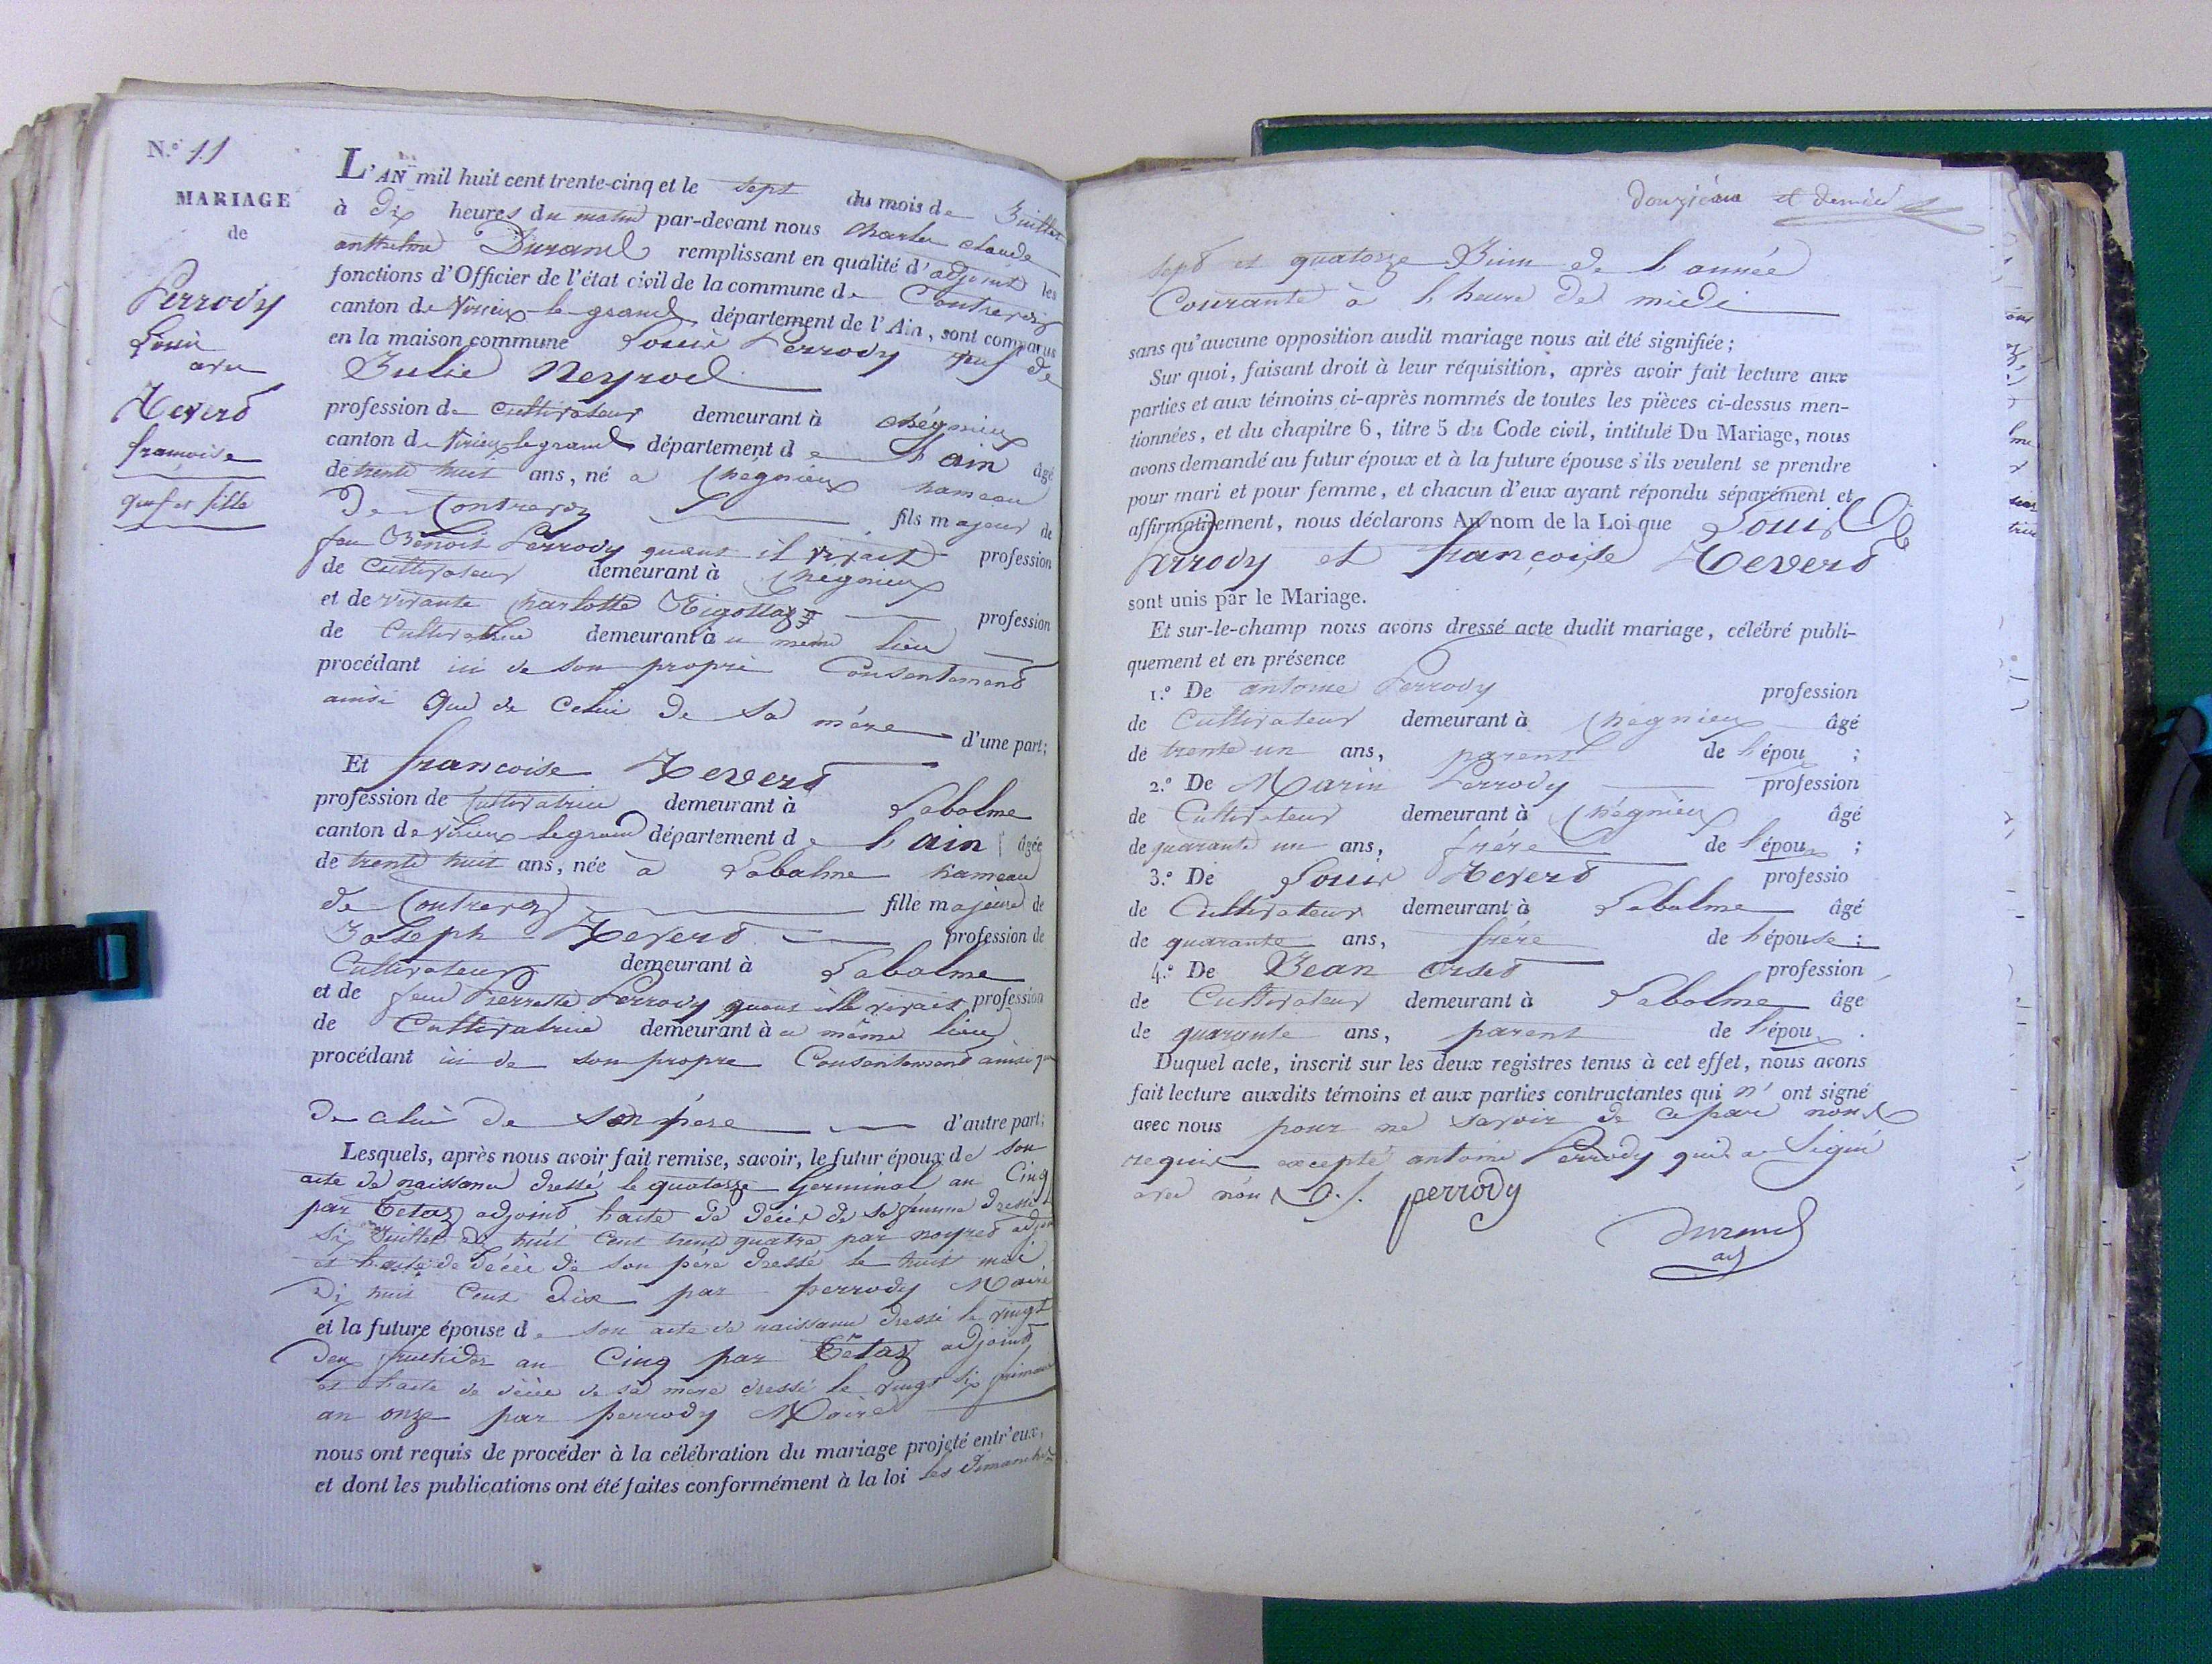 N.° 11
MARIAGE
de
Perrody
Louis
avec
Tevero
francoise
veuf et fille
L'AN mil huit cent trente-cinq et le sept du mois de Juillet
à Dix heures du matin par-devant nous Charles Claude
anthelme Durand remplissant en qualité d'adjoint les
fonctions d'Officier de l'état civil de la commune de Contrevoz
canton de Virieux-le-grand département de l'Ain, sont comparus
en la maison commune Louis Perrody veuf de
Julie Neyrod
profession de cultivateur demeurant à chégnieux
canton de Virieux le grand département de l'ain âgé
de trente huit ans, né a Chegnieux hameau
De Contrevoz fils majeur de
feu Benoit Perrody quand il vivait profession
de Cultivateur demeurant à Chégnieux
et de vivante Charlotte profession
de Cultivatrice demeurant à ce meme lieu
procédant ici de son propre Consentement
ainsi Que de Celui De sa mère d'une part;
Et francoise Tevero
profession de Cultivatrice demeurant à Labalme
canton de Virieux le grand département de l'ain âgée
de trente huit ans, née à Labalme hameau
de Contrevoz fille majeure de
Joseph Tevero profession de
Cultivateur demeurant à Labalme
et de feue Pierrette Perrody quand elle vivait profession
de Cultivatrice demeurant à ce même lieu
procédant ici de son propre Consentement ainsi que
De celui de son père d'autre part;
Lesquels, après nous avoir fait remise, savoir, le futur époux de son
acte de naissance dressé le quatorze Germinal an Cinq
par Tetaz adjoint l'acte de décès de sa femme dressé le
Six Juillet mil huit Cent trente quatre par noyred adjoint
et l'acte de décès de son père dressé le huit mai
Dix huit Cent Dix par perrody Maire
et la future épouse de son acte de naissance dressé le vingt
Deux fructidor an Cinq par Tétaz adjoint
et l'acte de décès de sa mère dressé le vingt six frimaire
an onze par perrody Maire
nous ont requis de procéder à la célébration du mariage projeté entr'eux,
et dont les publications ont été faites conformément à la loi les Dimanches
Douzième et dernier
Sept et quatorze Juin de l'année
Courante à l'heure de midi
sans qu'aucune opposition audit mariage nous ait été signifiée;
Sur quoi, faisant droit à leur réquisition, après avoir fait lecture aux
parties et aux témoins ci-après nommés de toutes les pièces ci-dessus men-
tionnées, et du chapitre 6, titre 5 du Code civil, intitulé Du Mariage, nous
avons demandé au futur époux et à la future épouse s'ils veulent se prendre
pour mari et pour femme, et chacun d'eux ayant répondu séparément et
affirmativement, nous déclarons Au nom de la Loi que Louis
Perrody et francoise Tevero
sont unis par le Mariage.
Et sur-le-champ nous avons dressé acte dudit mariage, célébré publi-
quement et en présence
1.° De antoine Perrody profession
de Cultivateur demeurant à Chégnieux âgé
de trente un ans, parent de l'épou ;
2.° De Marin Perrody profession
de Cultivateur demeurant à Chégnieux âgé
de quarante un ans, frère de l'époux ;
3.° De Louis Tevero professio
de Cultivateur demeurant à Labalme âgé
de quarante ans, frère de l'épouse ;
4.° De Jean profession
de Cultivateur demeurant à Labalme âgé
de quarante ans, parent de l'époux .
Duquel acte, inscrit sur les deux registres tenus à cet effet, nous avons
fait lecture auxdits témoins et aux parties contractantes qui n' ont signé
avec nous pour ne savoir de ce par nous
requis excepté antoine Perrody qui a Signé
avec nous perrody
Durand
adj